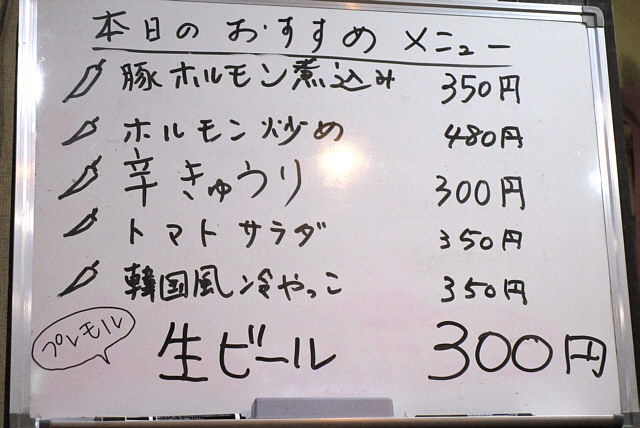 本日のおすすめ メニュー
豚ホルモン煮込み 350円
ホルモン炒め 480円
辛きゅうり 300円
トマトサラダ 350円
韓国風冷やっこ 350円
プレモル 生ビール 300円